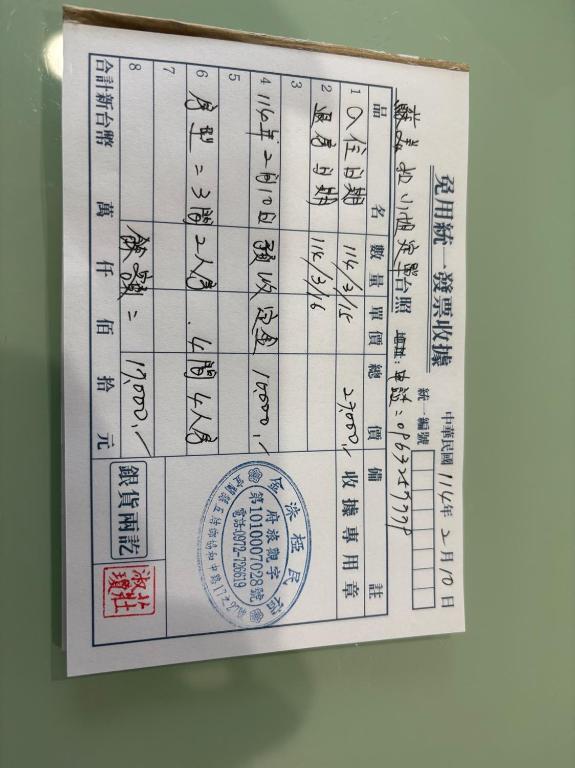 免用統一發票收據
中華民國 114年 2月10日
統一編號
小姐定單台照 地址:電話=0963259998
品名 數量 單價 總價 備註
1 入住日期 114/3/15 27,000.- 收據專用章
2 退房日期 114/3/16
3
4 114年2月10日 預收定金 10,000.-
5
6 房型=3間2人房.4間4人房
7
8 餘額= 17,000.-
合計新台幣 萬 仟 佰 拾 元
銀貨兩訖
金 民宿
府旅觀字
第1010007028號
電話:0972-726619